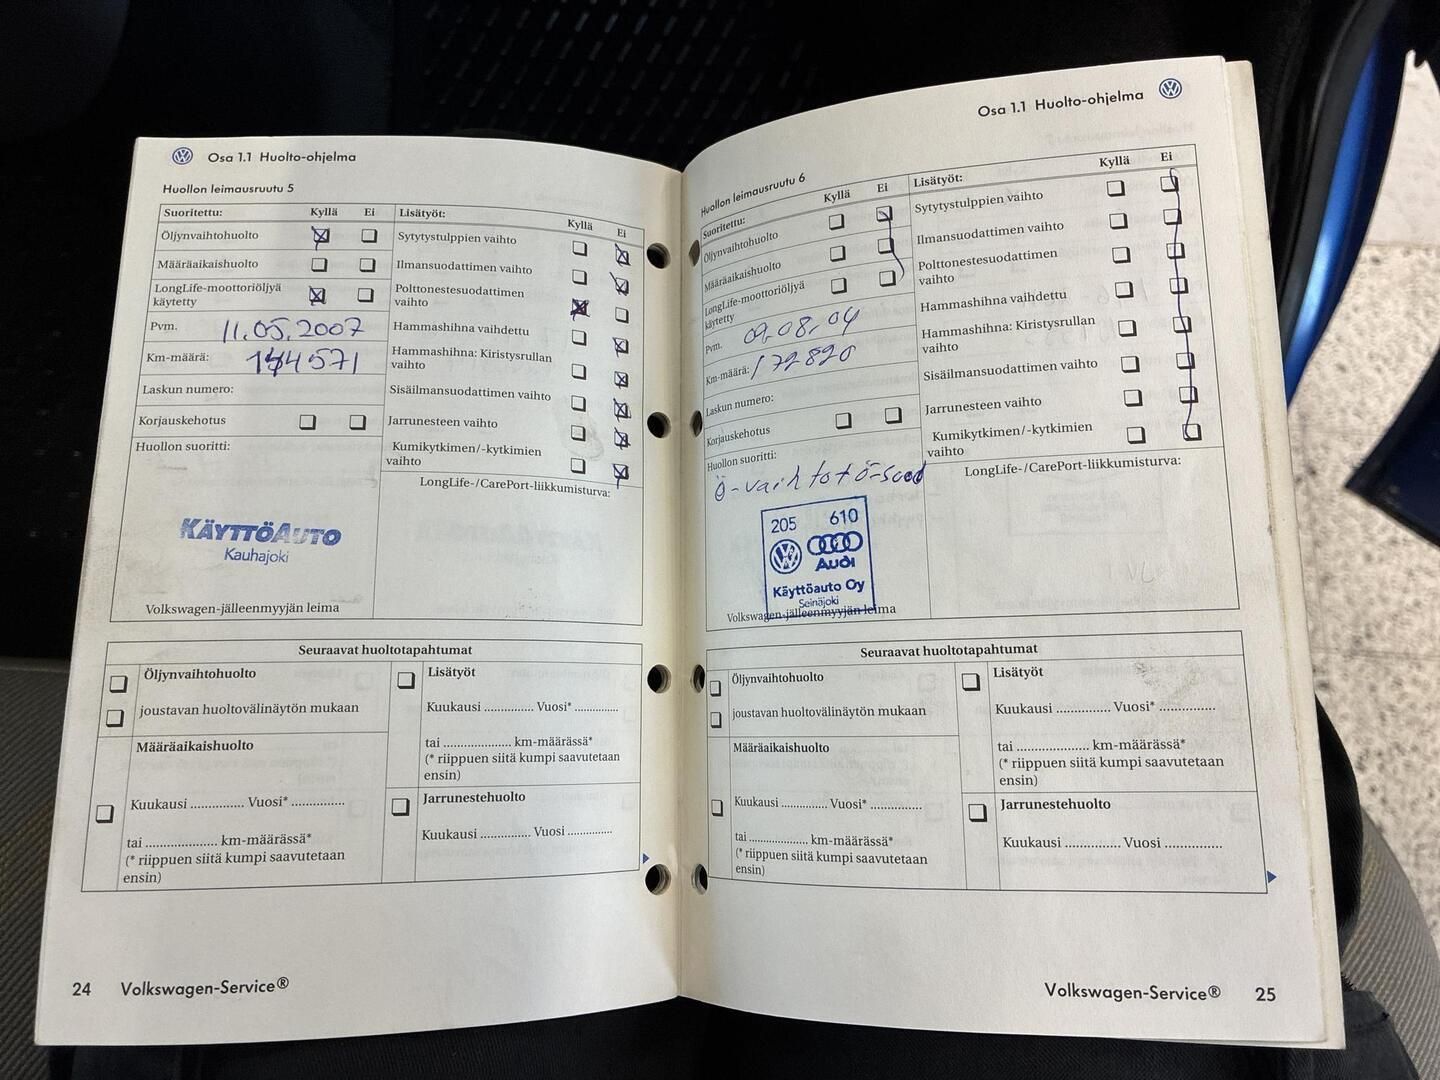 Osa 1.1 Huolto-ohjelma
Huollon leimausruutu 5
Suoritettu: Kyllä Ei
Öljynvaihtohuolto
Määräaikaishuolto
LongLife-moottoriöljyä
käytetty
Pvm. 11.05.2007
Km-määrä: 144571
Laskun numero:
Korjauskehotus
Huollon suoritti:
KÄYTTÖAUTO
Kauhajoki
Volkswagen-jälleenmyyjän leima
Lisätyöt: Kyllä Ei
Sytytystulppien vaihto
Ilmansuodattimen vaihto
Polttonestesuodattimen
vaihto
Hammashihna vaihdettu
Hammashihna: Kiristysrullan
vaihto
Sisäilmansuodattimen vaihto
Jarrunesteen vaihto
Kumikytkimen/-kytkimien
vaihto
LongLife-/CarePort-liikkumisturva:
Seuraavat huoltotapahtumat
Öljynvaihtohuolto
joustavan huoltovälinäytön mukaan
Määräaikaishuolto
Kuukausi ............... Vuosi* ...............
tai .................... km-määrässä*
(* riippuen siitä kumpi saavutetaan
ensin)
Lisätyöt
Kuukausi ............... Vuosi* ............
tai ................... km-määrässä*
(* riippuen siitä kumpi saavutetaan
ensin)
Jarrunestehuolto
Kuukausi ............... Vuosi .............
24 Volkswagen-Service®
Osa 1.1 Huolto-ohjelma
Huollon leimausruutu 6
Suoritettu: Kyllä Ei
Öljynvaihtohuolto
Määräaikaishuolto
LongLife-moottoriöljyä
käytetty
Pvm. 09.08.04
Km-määrä: 172820
Laskun numero:
Korjauskehotus
Huollon suoritti:
205 610
Audi
Käyttöauto Oy
Seinäjoki
Volkswagen-jälleenmyyjän leima
Lisätyöt: Kyllä Ei
Sytytystulppien vaihto
Ilmansuodattimen vaihto
Polttonestesuodattimen
vaihto
Hammashihna vaihdettu
Hammashihna: Kiristysrullan
vaihto
Sisäilmansuodattimen vaihto
Jarrunesteen vaihto
Kumikytkimen/-kytkimien
vaihto
LongLife-/CarePort-liikkumisturva:
Seuraavat huoltotapahtumat
Öljynvaihtohuolto
joustavan huoltovälinäytön mukaan
Määräaikaishuolto
Kuukausi ............. Vuosi* ..............
tai .................... km-määrässä*
(* riippuen siitä kumpi saavutetaan
ensin)
Lisätyöt
Kuukausi ............... Vuosi* ...............
tai .................... km-määrässä*
(* riippuen siitä kumpi saavutetaan
ensin)
Jarrunestehuolto
Kuukausi ............... Vuosi ...............
Volkswagen-Service® 25